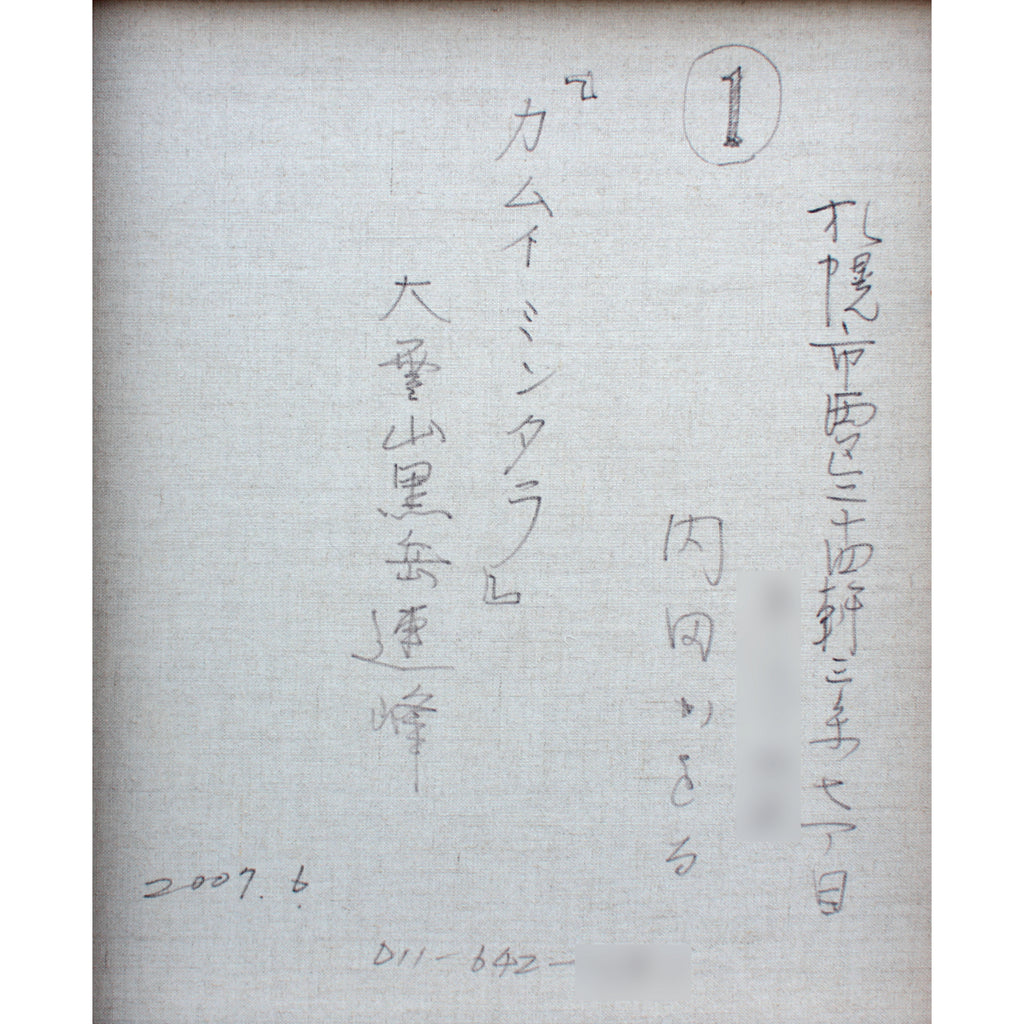 札幌市西区二十四軒三条七丁目
①
内田かをる
『カムイミンタラ』
大雪山黒岳連峰
2007.6.
011-642-